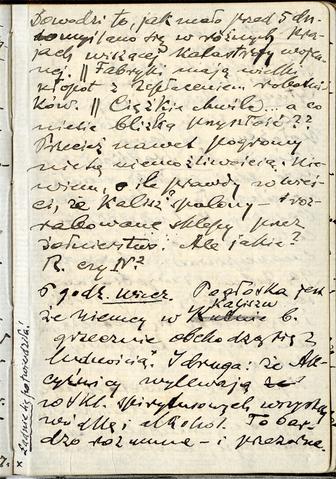 Dowodzi to, jak mało przed 5 dn.
domyślano się w różnych kra-
jach wiszącej katastrofy wojen-
nej. || Fabryki mają wielki
kłopot z zapłaceniem robotni-
ków. || Ciężkie chwile... a co
niesie bliska przyszłość??
Przecież nawet pogromy
nie są niemożliwością. Nie
wiem, o ile prawdy w wieś-
ci, że Kalisz spalony – i roz-
rabowane sklepy przez
żołnierstwo. Ale jakie?
R. czy N?
6 godz. wiecz. Pogłoska jest,
że Niemcy w Kaliszu b.
grzecznie obchodzą się z
ludnością. I druga: że Ak-
cyźnicy wylewają
ze skł. spirytusowych wszystką
wódkę i alkohol. To bar-
dzo rozumne – i przezorne.
Ładnie się potwierdziła!
x